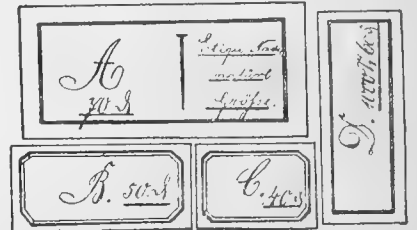 A
70 ₰
natürl
Größe.
B. 50 ₰
C. 40 ₰
D.